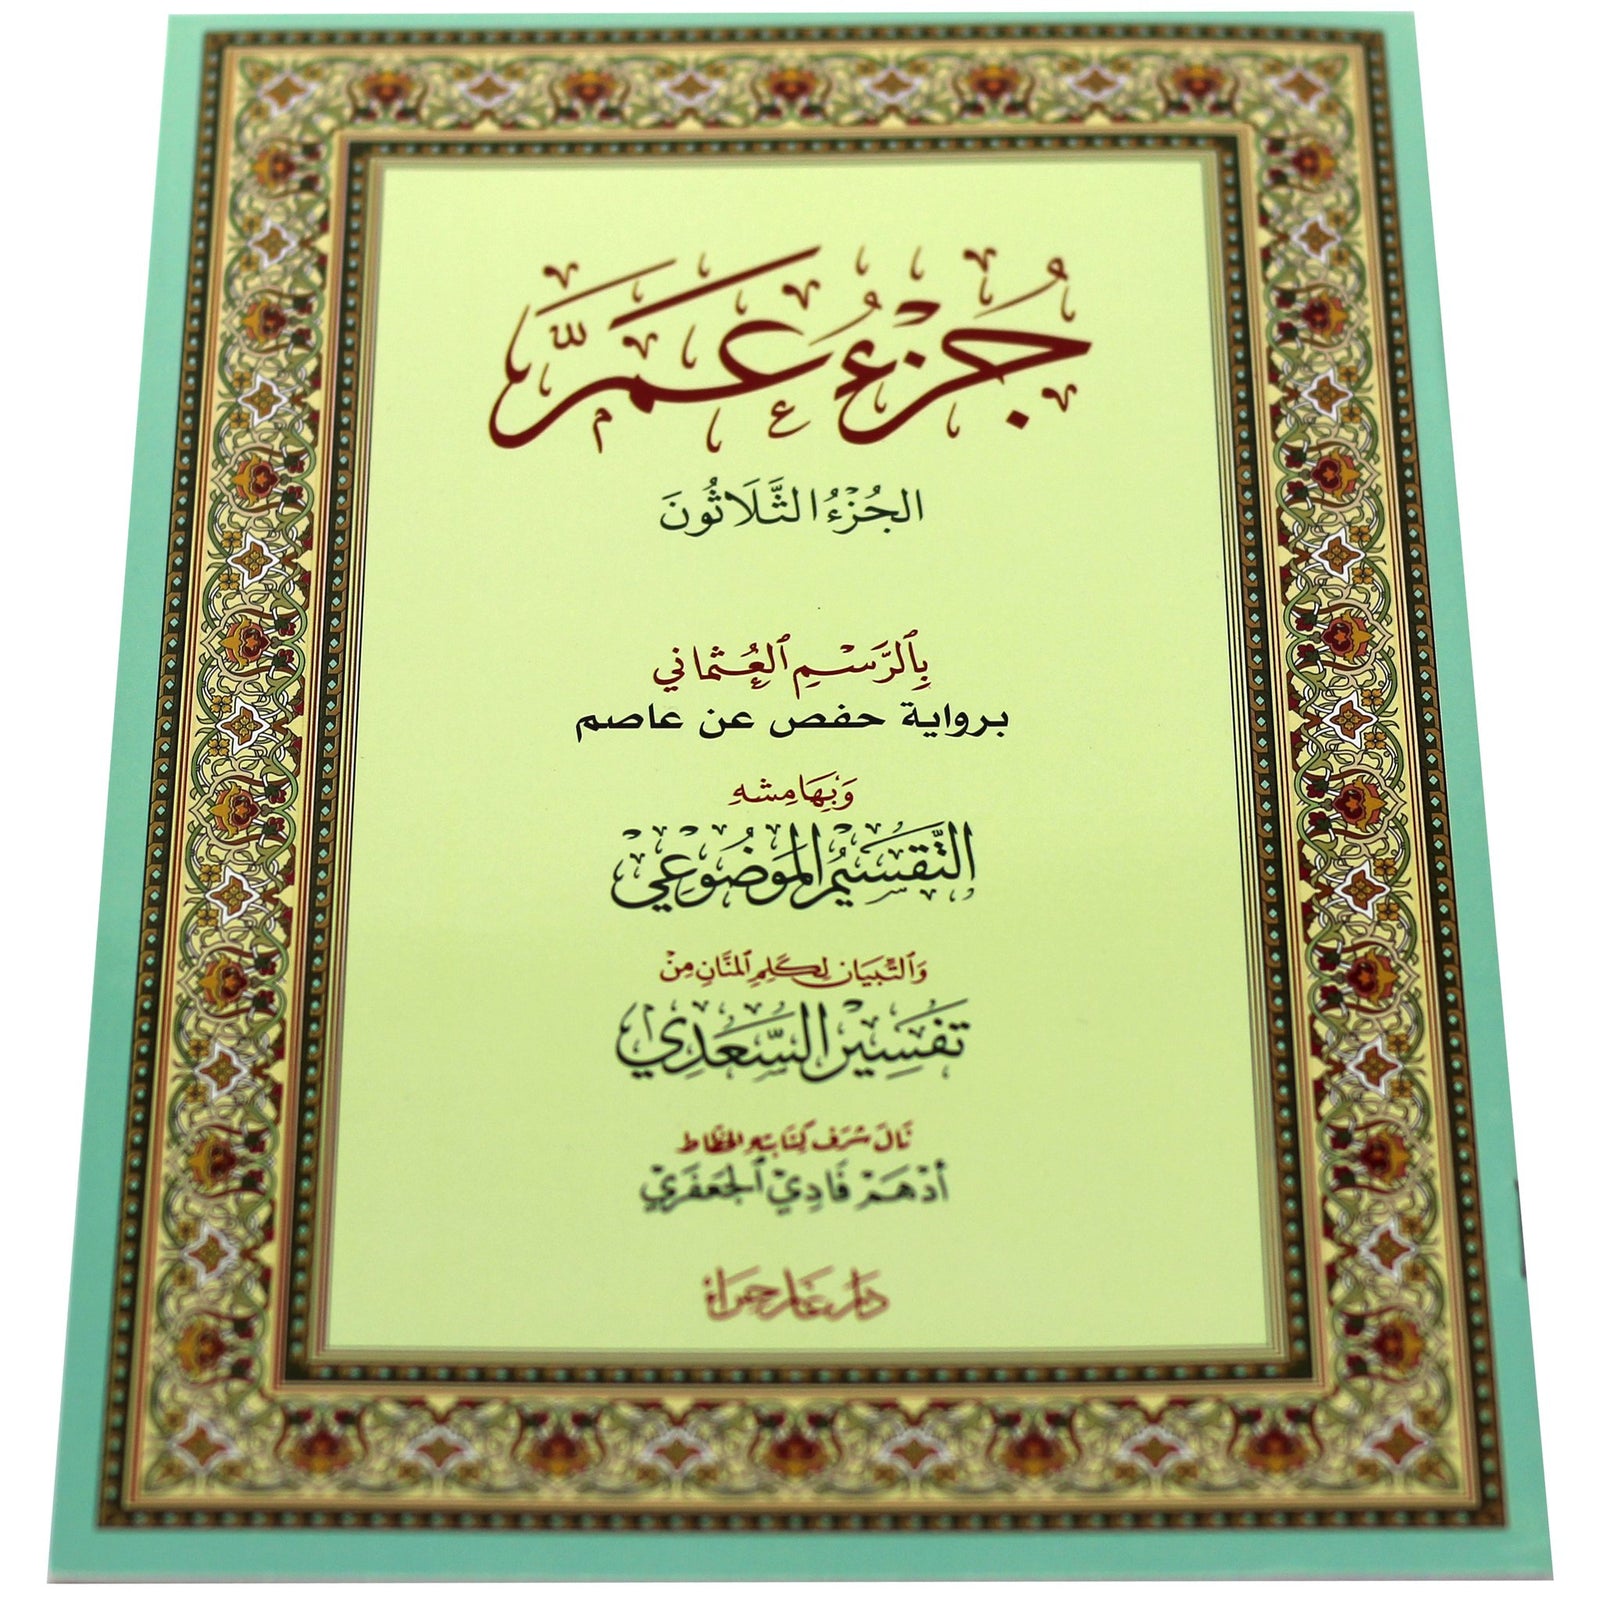 جُزْءُ عَمَّ
الجُزْءُ الثَّلَاثُونَ
بِٱلرَّسْمِ ٱلعُثْمَانِي
برواية حفص عن عاصم
وَبِهَامِشِهِ
التَّقْسِيْمُ المَوْضُوْعِيْ
وَٱلتِّبْيَان لِكَلِمِ ٱلمَنَّانِ مِنْ
تَفْسِيْرِ السَّعْدِيْ
نَالَ شَرَفَ كِتَابَتِهِ الخَطَّاط
أَدْهَمْ فَادِيْ ٱلجَعْفَرِيْ
دَار غَار حِرَاء